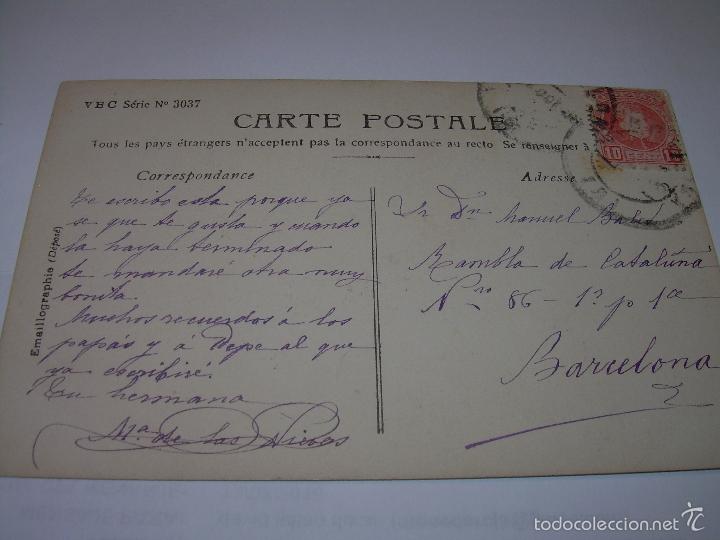 VBC Série Nº 3037
CARTE POSTALE
Tous les pays étrangers n'acceptent pas la correspondance au recto Se renseigner à
Correspondance
Adresse
Te escribo esta porque ya
se que te gusta y cuando
la haya terminado
te mandaré otra muy
bonita.
Muchos recuerdos á los
papás y á Pepe al que
ya escribiré.
Tu hermana
Mª de las Nieves
Sr Dn Manuel
Rambla de Cataluña
Nro 86 - 1º p 1ª
Barcelona
Emaillographie (Déposé)
10
todocoleccion.net